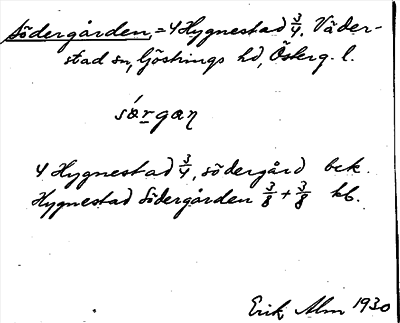 Södergården, = 4 Hygnestad 3/4. Väder-
stad sn, Göstrings hd, Österg. l.
sørgaɳ
4 Hygnestad 3/4, södergård bek.
Hygnestad Södergården 3/8 + 3/8 kb.
Erik Alm 1930